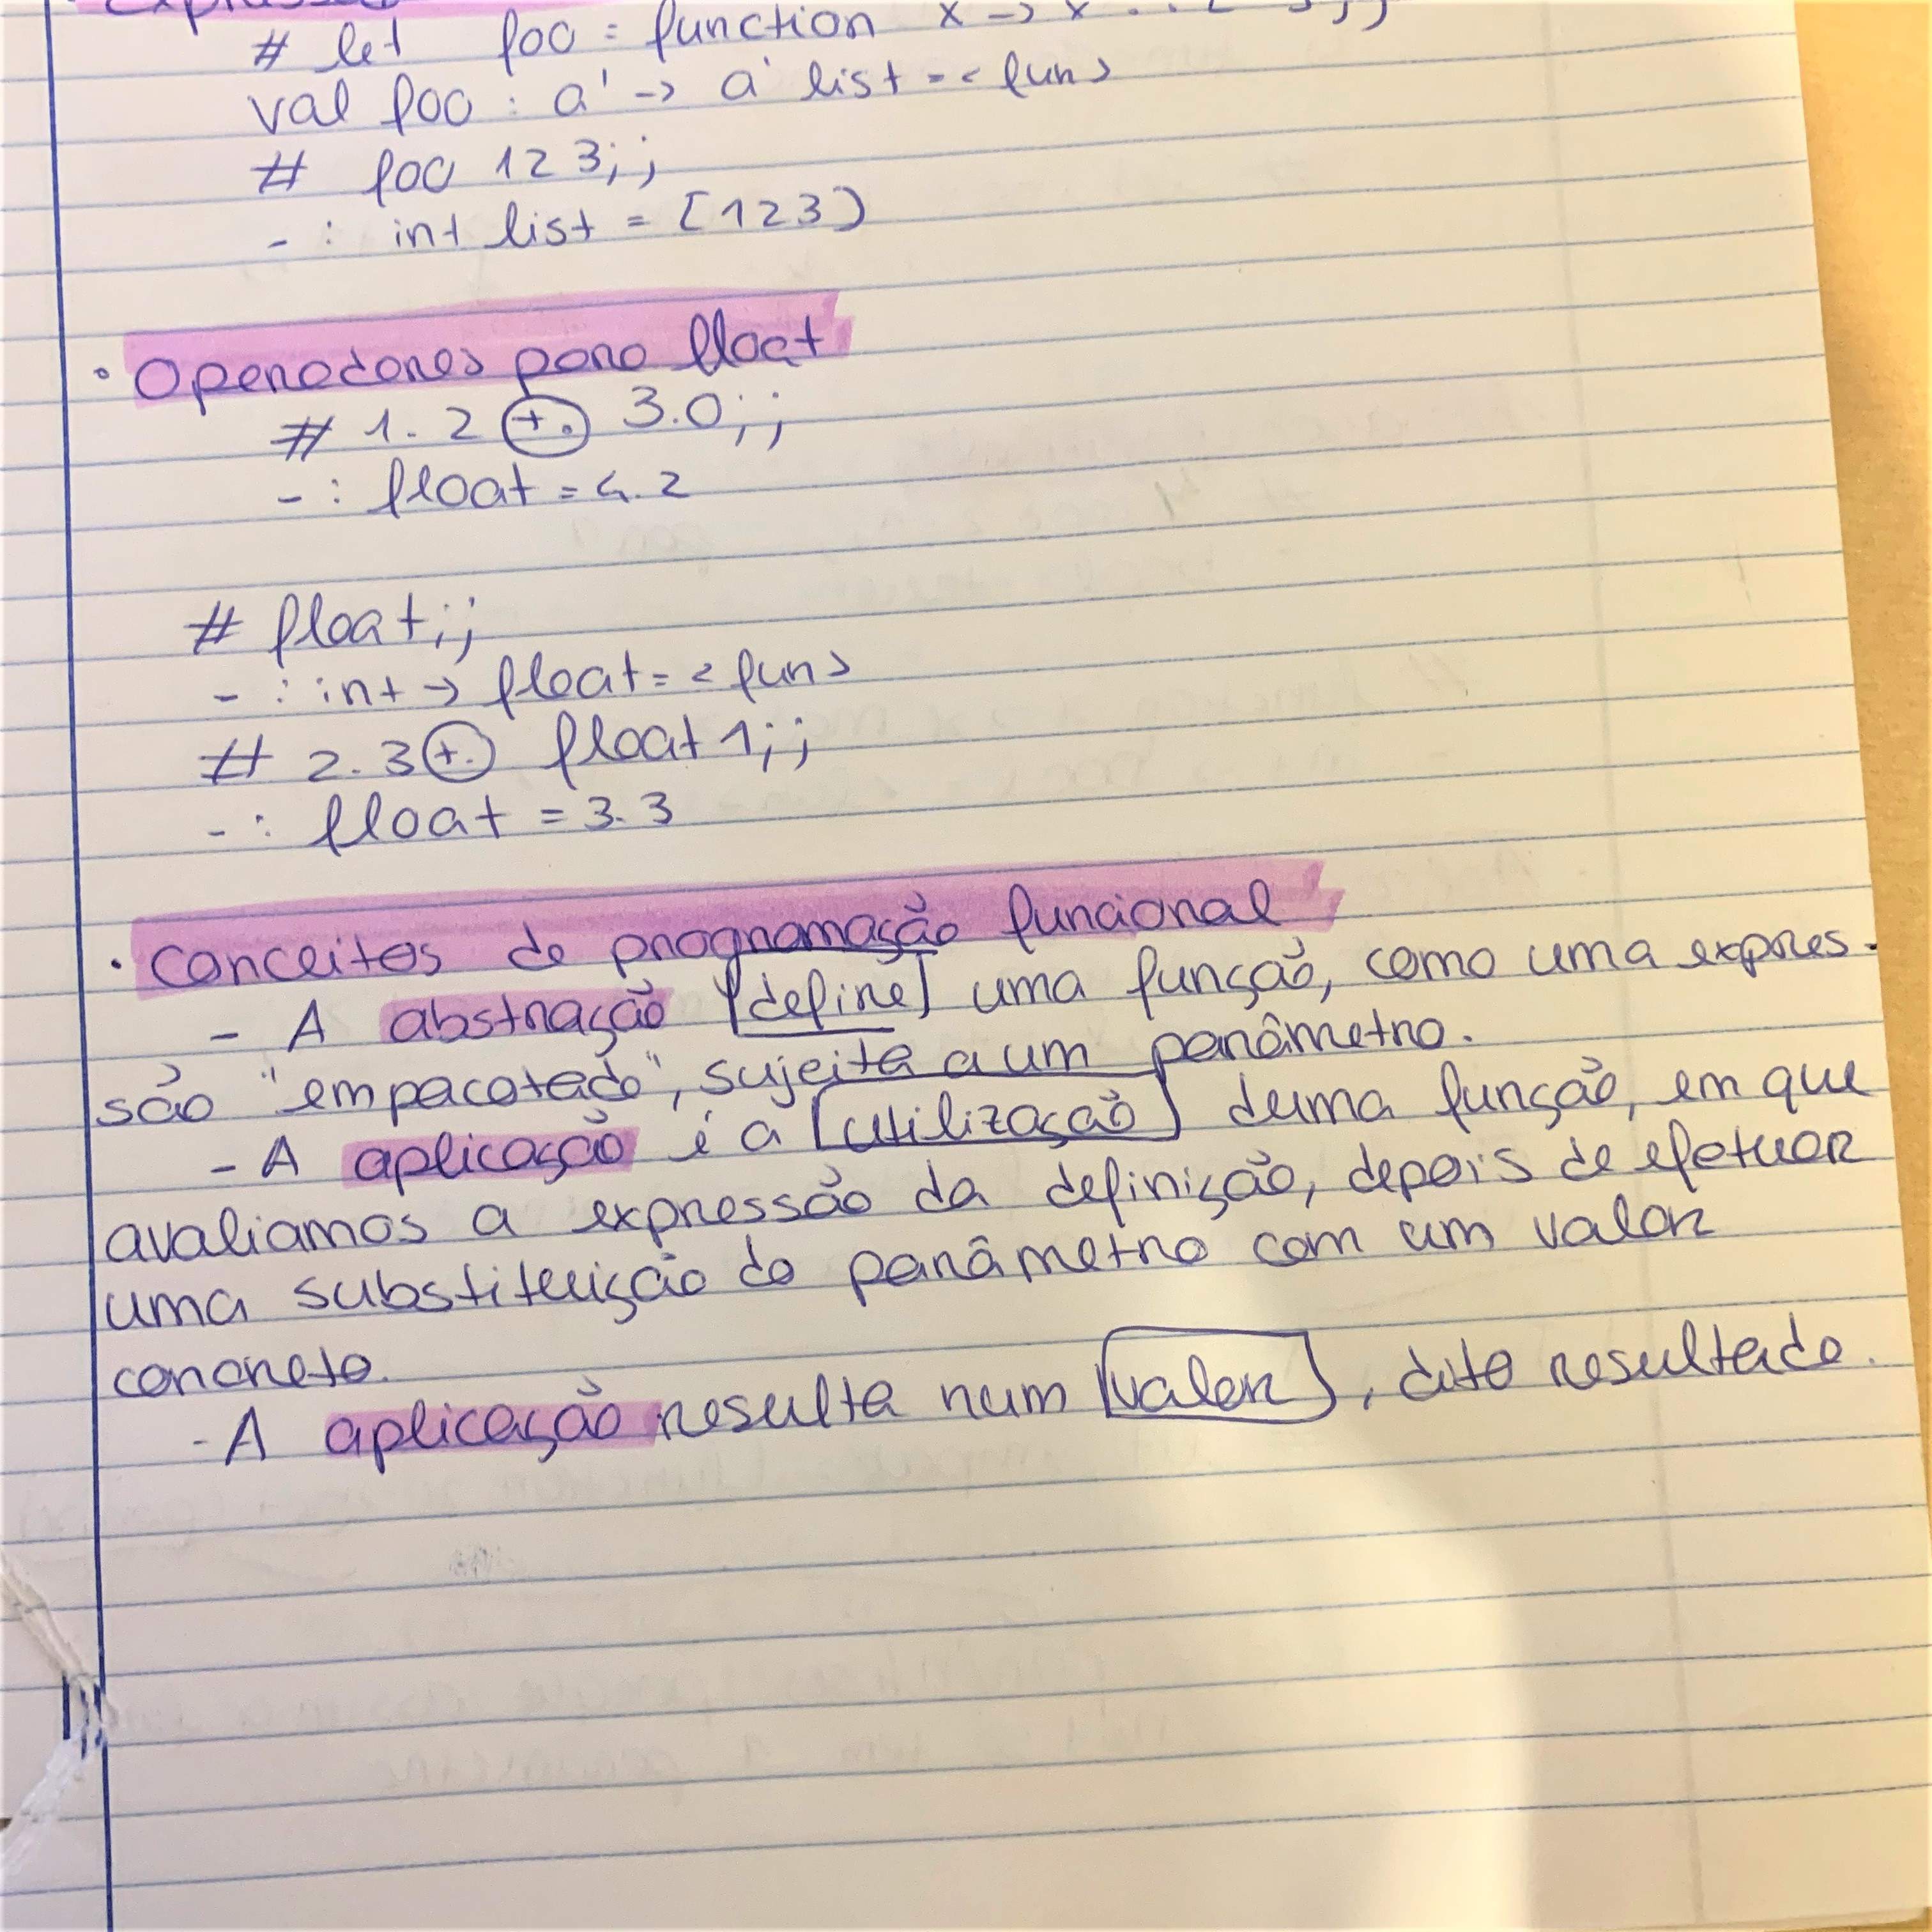 # let foo = function x -> x :: [ ];;
val foo : a' -> a' list = <fun>
# foo 123;;
- : int list = [123]
• Operadores para float
# 1.2 +. 3.0;;
- : float = 4.2
# float;;
- : int -> float = <fun>
# 2.3 +. float 1;;
- : float = 3.3
• Conceitos de programação funcional
- A abstração [define] uma função, como uma expres-
são "empacotado", sujeita a um parâmetro.
- A aplicação é a [utilização] duma função, em que
avaliamos a expressão da definição, depois de efetuar
uma substituição do parâmetro com um valor
concreto.
- A aplicação resulta num [valor], dito resultado.